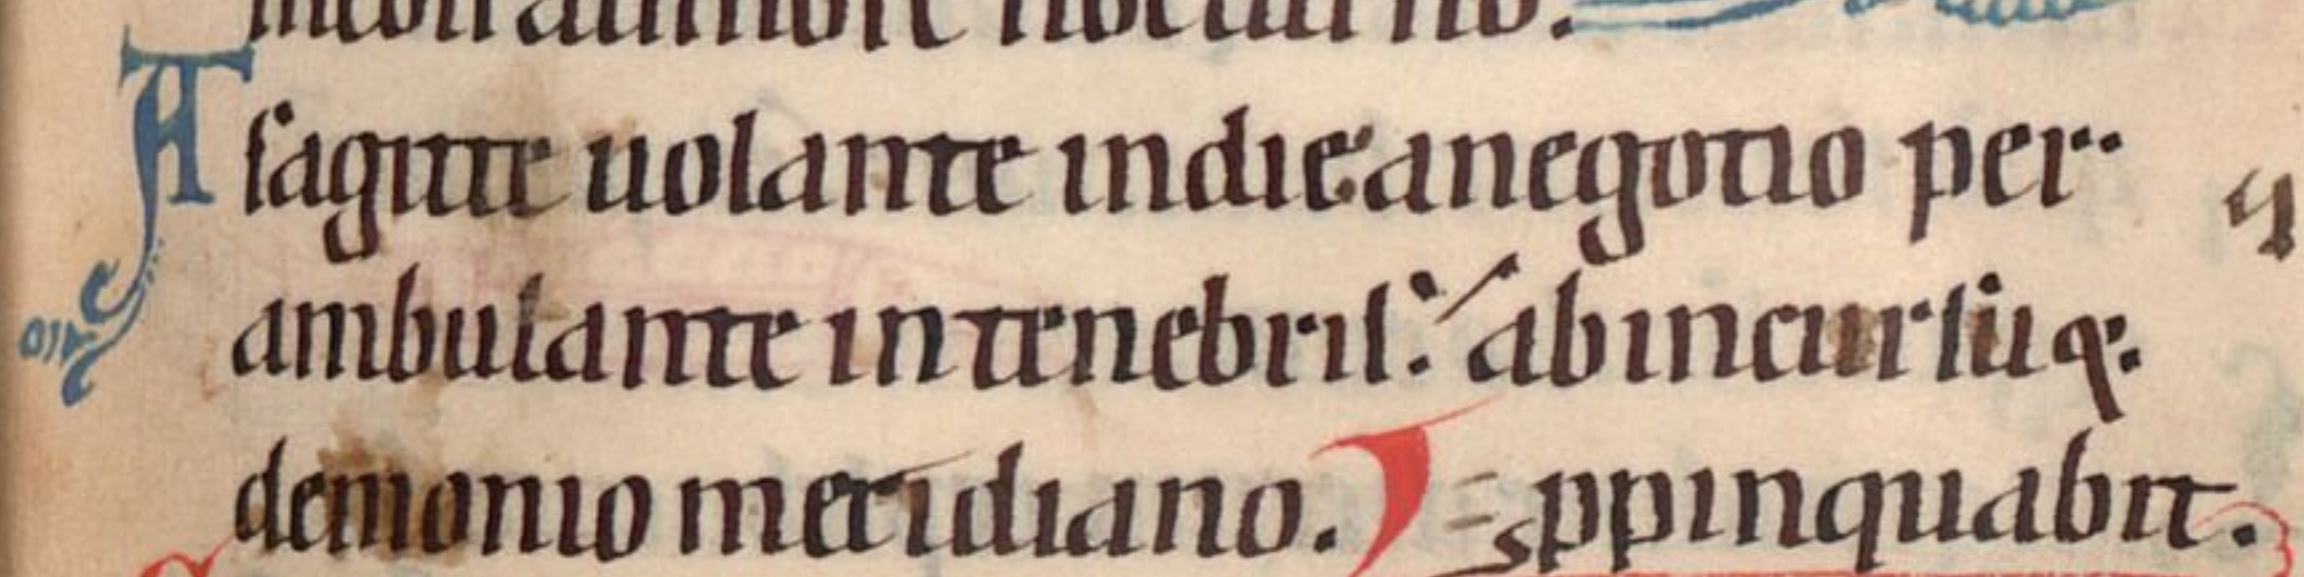 atimore nocturno.
A sagitte uolante indie anegotio per·
ambulante intenebris: abincursū q.
demonio meridiano. ꝓpinquabit.